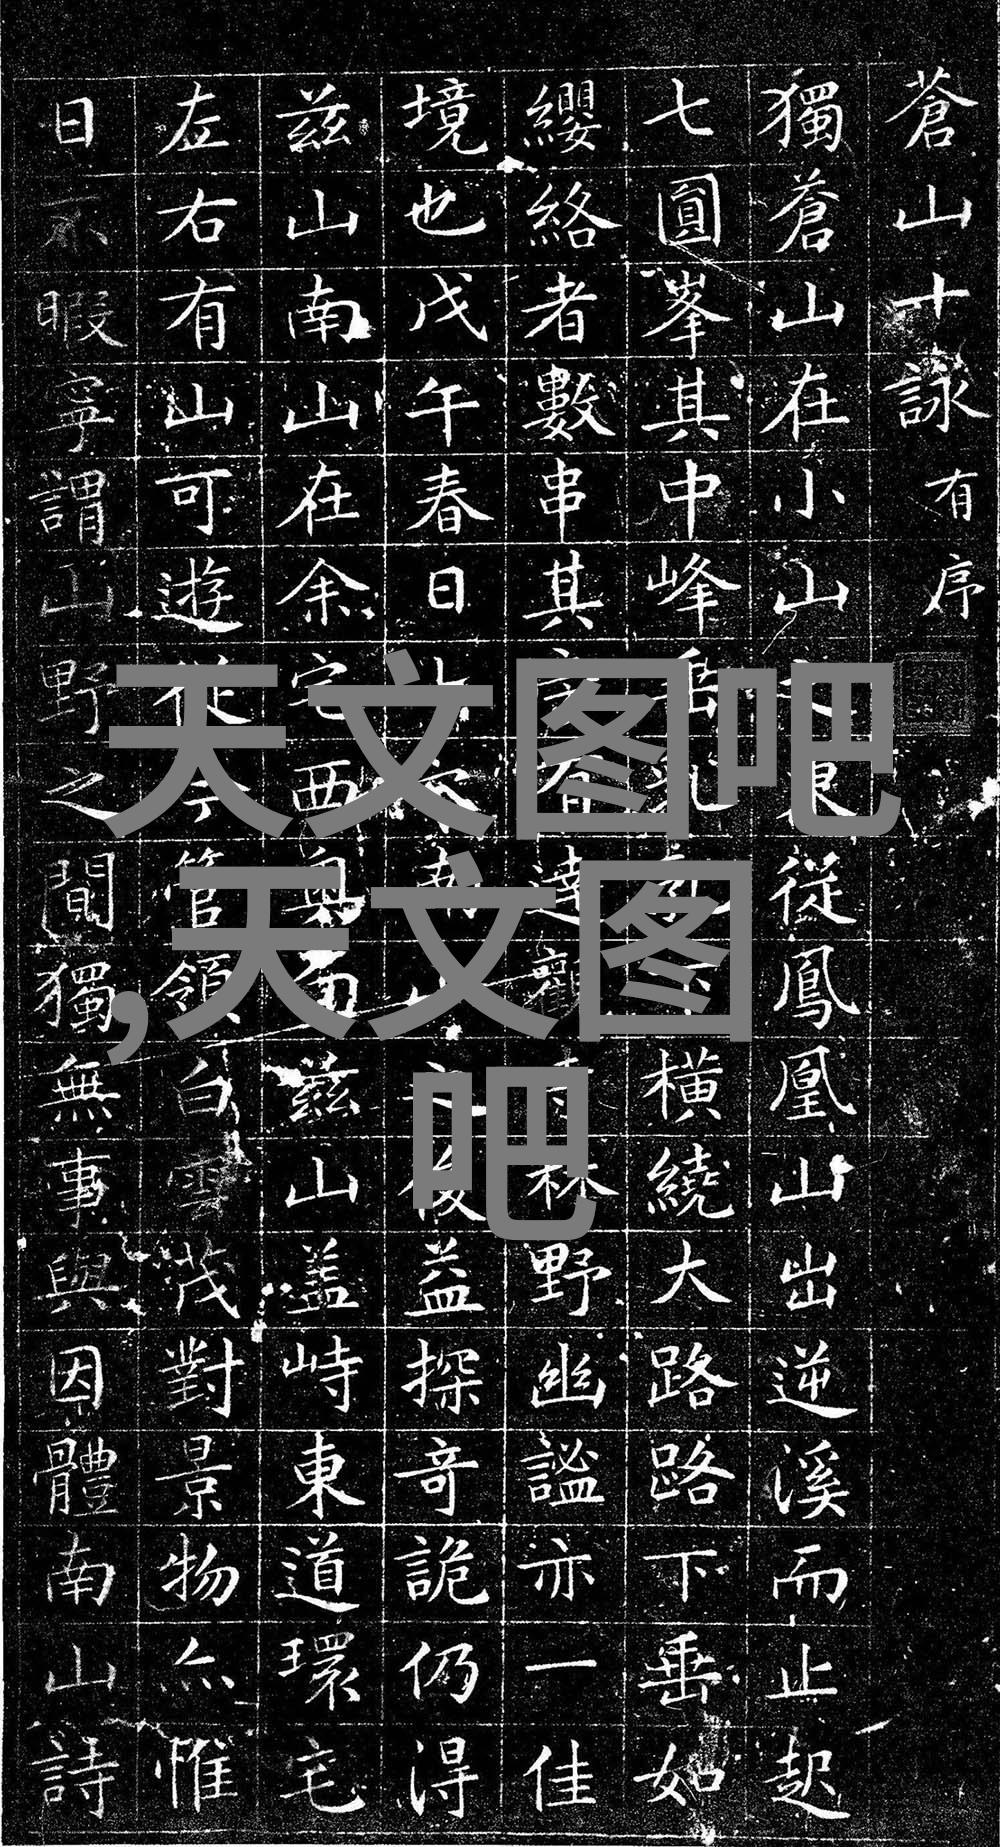 蒼山十詠 有序
獨蒼山在小山從鳳凰山出逆溪而止起
七圓峯其中峰橫繞大路路下垂如
纓絡者數串其達觀林野幽謐亦一佳
境也戊午春日南山之後益探奇詭仍得
茲山南山在余宅西奧而茲山蓋峙東道環宅
左右有山可遊從今管領白雲茂對景物亦惟
日不暇寧謂山野之間獨無事與因體南山詩
天文图吧
,天文图
吧